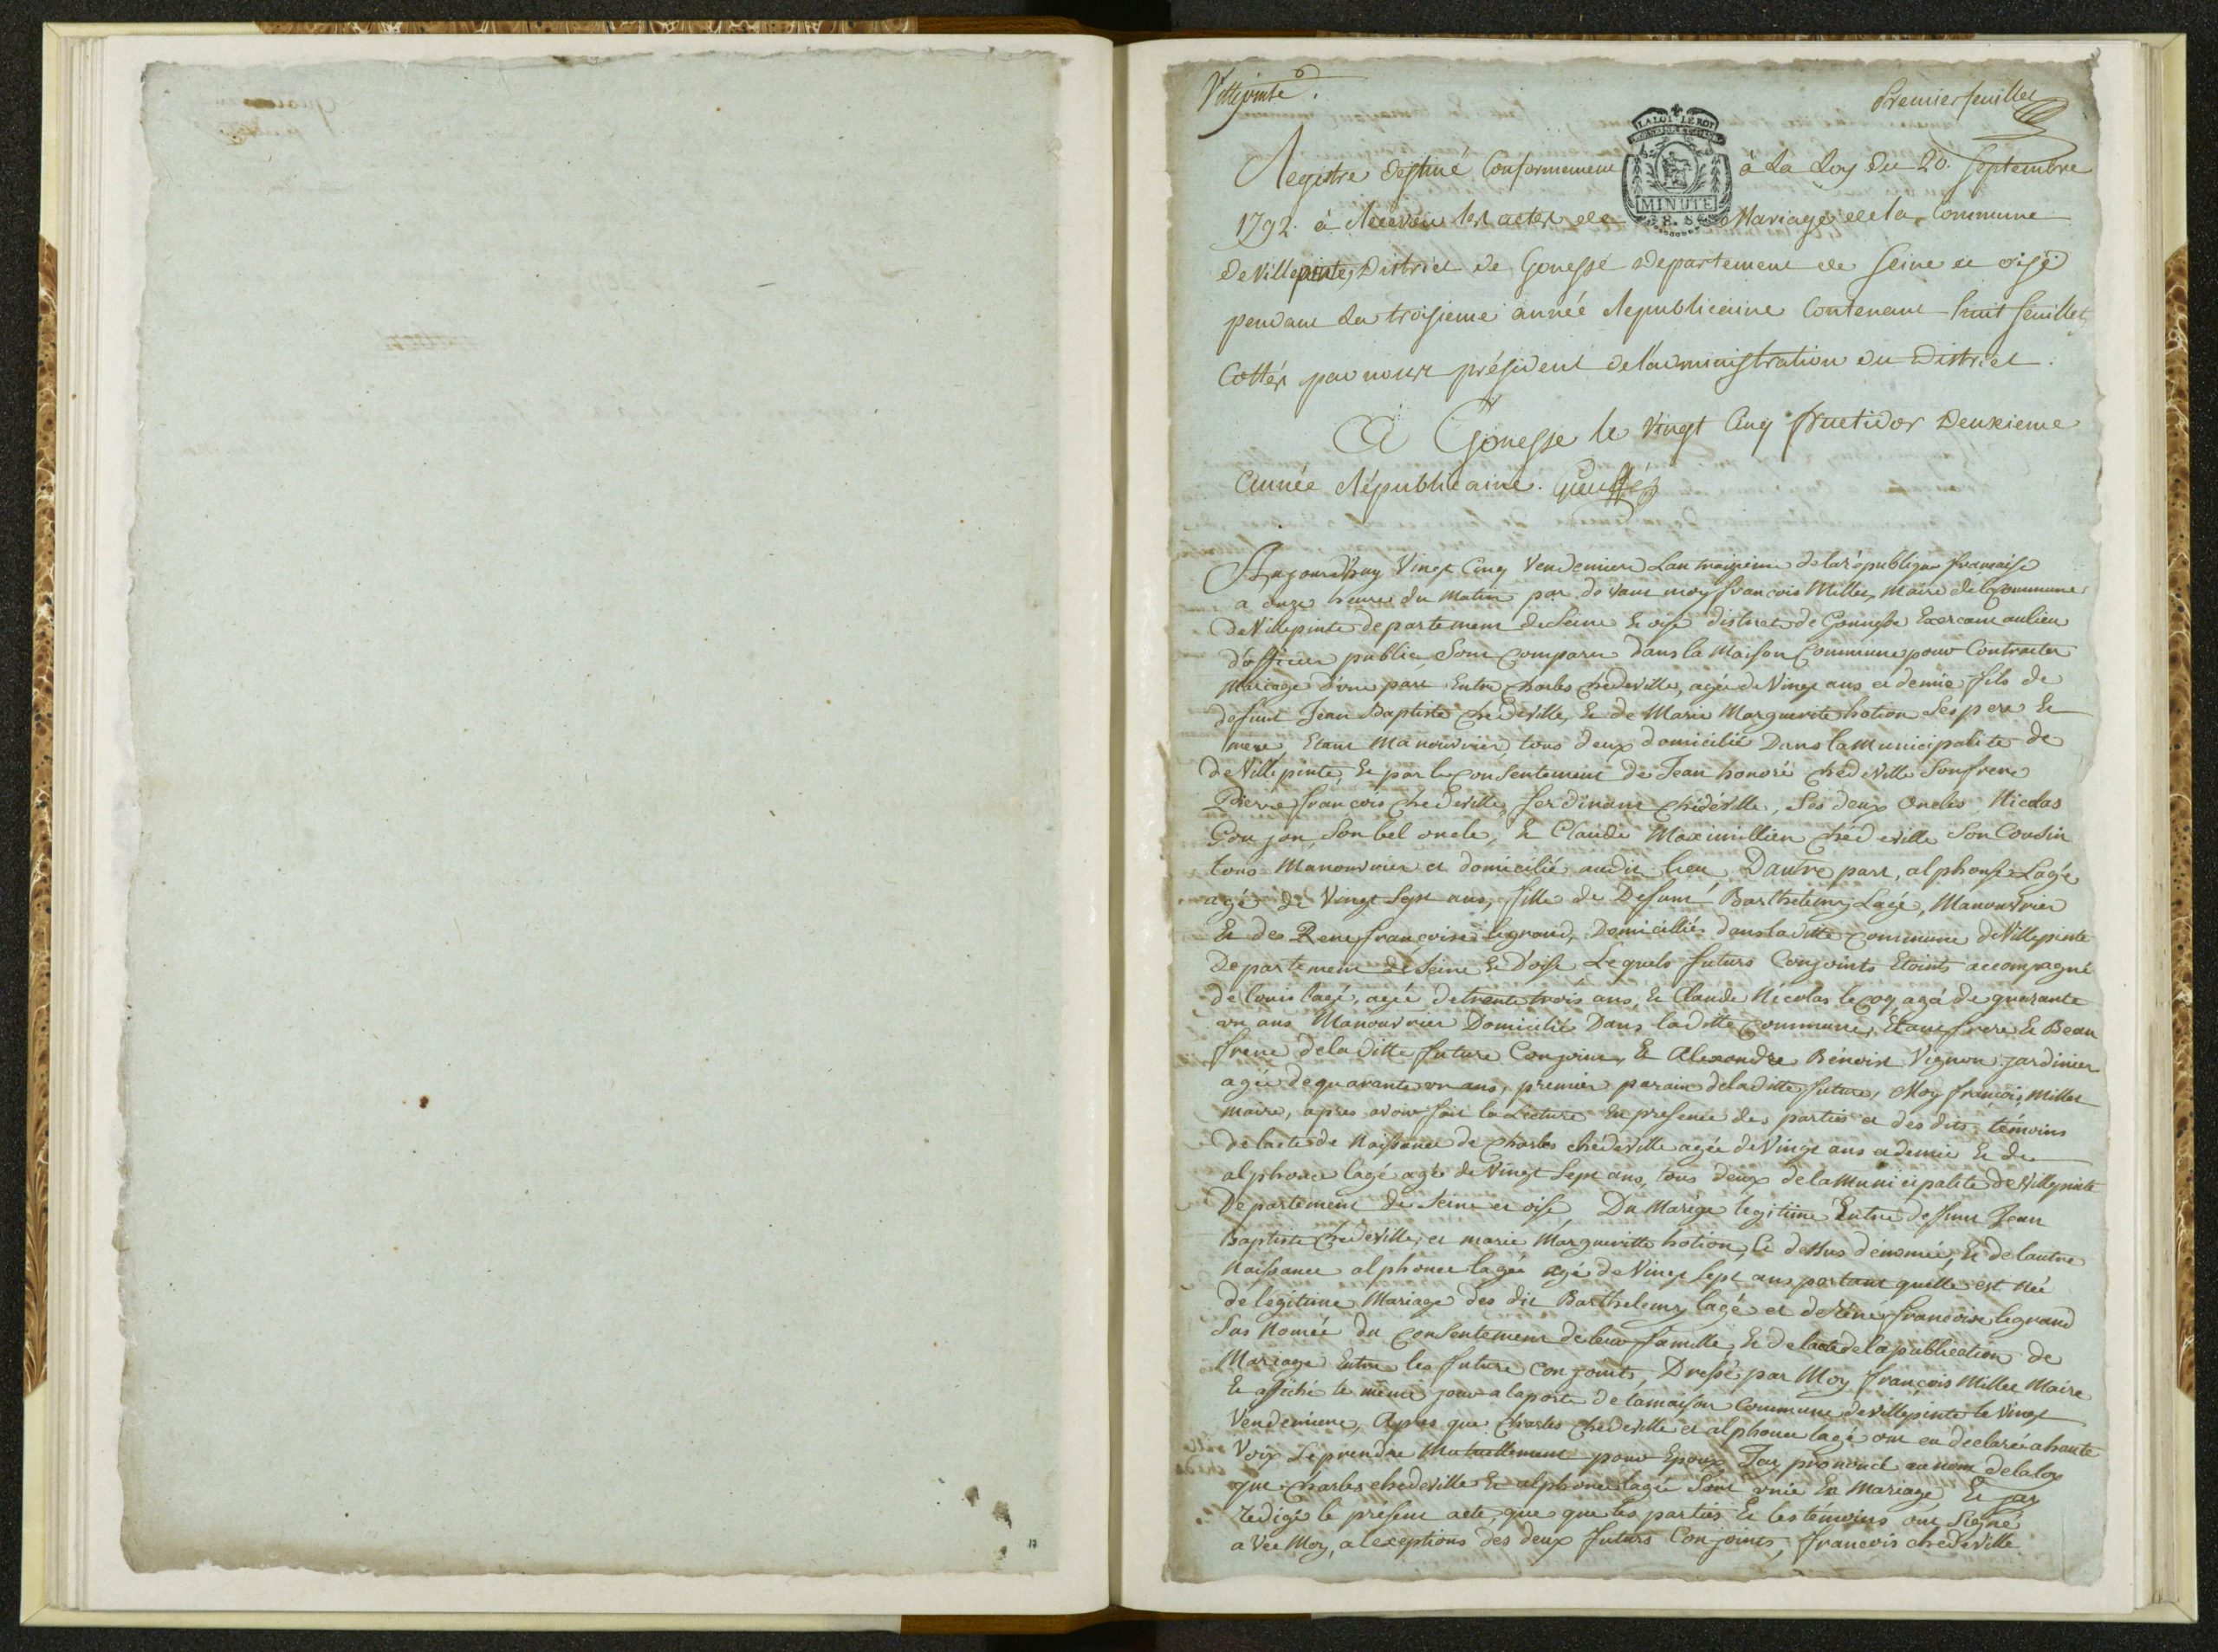 Villepinte.
Premier feuillet
LA LOI LE ROI
MINUTE
Registre destiné Conformement à La Loy du 20. Septembre
1792. à Recevoir les actes de Mariage de la Commune
de Villepinte, District de Gonesse departement de Seine et oise
pendant La troisieme année Republicaine Contenant huit feuillets
Cottés par nous président de l'administration du District.
A Gonesse le Vingt Cinq fructidor Deuxieme
année Républicaine.
Aujourdhuy Vingt Cinq Vendemiere Lan troisieme de la république francaise
a onze heures du Matin par devant moy francois Millet, Maire de la Commune
de Villepinte departement de Seine Et oise district de Gonnesse Exercant au lieu
d'officier public, Sont Comparu dans la Maison Commune pour Contracter
Mariage d'une part Entre Charles chedeville, agée de Vingt ans et demie fils de
defunt Jean Baptiste chedeville, Et de Marie Marguerite hotion Ses pere Et
mere, Etant Manouvrier, tous deux domicilié Dans la Municipalite de
de Villepinte, Et par le Consentement de Jean honoré chedeville Son frere
Pierre francois chedeville, ferdinant chédéville, Ses deux Oncles Nicolas
Goujon, Son bel oncle, Et Claude Maximillien chédeville Son Cousin
tous Manouvrier et domicilié audit lieu, Dautre part, alphonse Lagé
agé de Vingt Sept ans, fille de Defunt Barthelemy Lagé, Manouvrier
Et de Rene francoise legrand, Domicilliés dans laditte Commune de Villepinte
Departement de Seine Et D'oise Lequels futurs Conjoints Etoints accompagné
de louis lagé, agée de trente trois ans, Et Claude Nicolas le Coq agé de quarante
un ans Manouvrier Domicilié Dans laditte Commune, Etant frere Et Beau
frere de laditte future Conjoint, Et Alexandre Bénoist Vignon jardinier
agée de quarante un ans, premier parain de laditte future, Moy francois Millet
maire, apres avoir fait la Lecture En presence des parties et des dits témoins
de lacte de Naissance de Charles chédeville agée de Vingt ans et demie Et de
alphonse lagé agé de Vingt Sept ans, tous deux de la Municipalité de Villepinte
Departement de Seine et oise, Du Marige legitime Entre deffunt Jean
Baptiste Chedeville, et marie Margueritte hotion, Ci dessus dénomée, Et de lautre
Naissance alphonce lagée agé de Vingt Sept ans portant quelle est Né
de légitime Mariage des dit Barthelemy lagé et de René francoise legrand
Sus Nomée du Consentement de leur famille, Et de lacte de la publication de
Mariage Entre les future Conjoints, Dressé par Moy francois Millet Maire
Et affiché le même jour a la porte de la maison Commune de villepinte le Vingt
Vendemiere, Apres que Charles chedeville et alphonce lagé ont eu declaré a haute
Voix Se prendre Mutuellement pour Epoux Jay prononcé au nom de la loy
que Charles chedeville Et alphonce lagée Sont unie En Mariage, Et jay
redigé le présent acte, que que les parties Et les témoins ont Signé
a Vec Moy, a lexeptions des deux futurs Conjoints, francois chedeville